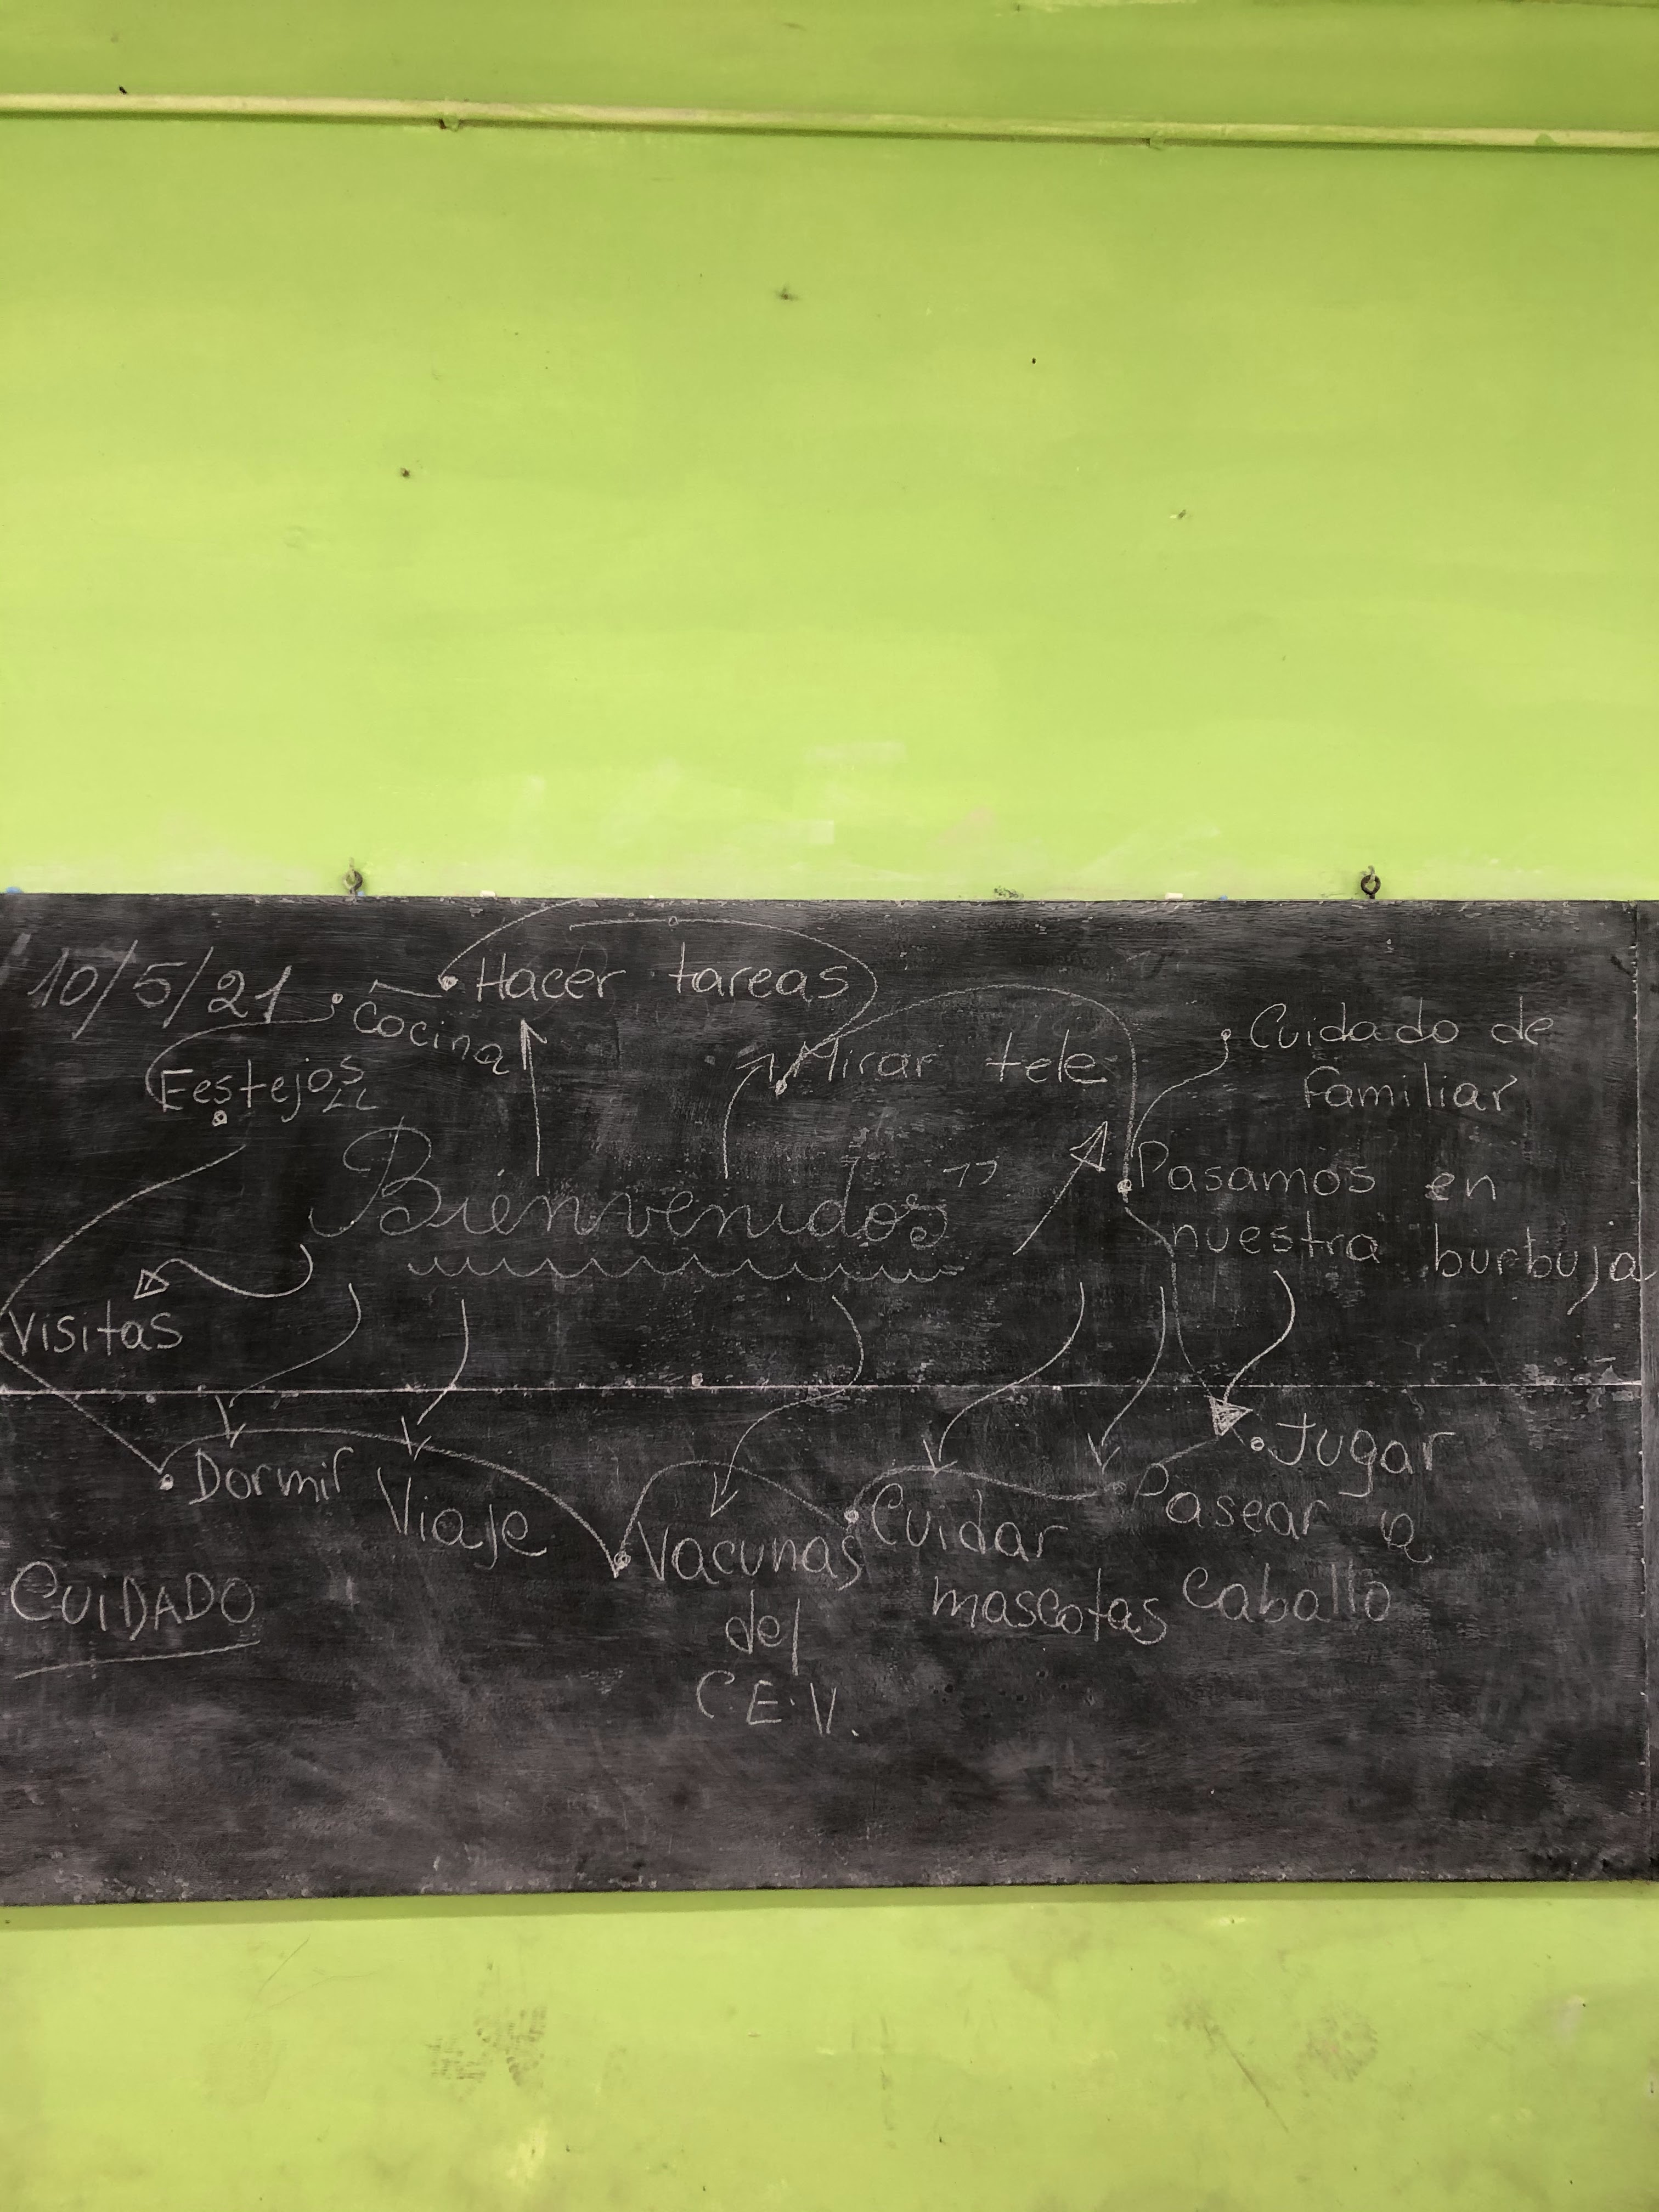 10/5/21
Cocina
Hacer tareas
Festejos
Mirar tele
Cuidado de
familiar
Bienvenidos
Pasamos en
nuestra burbuja
Visitas
Dormir
Viaje
Vacunas
del
C.E.V.
Cuidar
mascotas
Pasear a
caballo
Jugar
CUIDADO